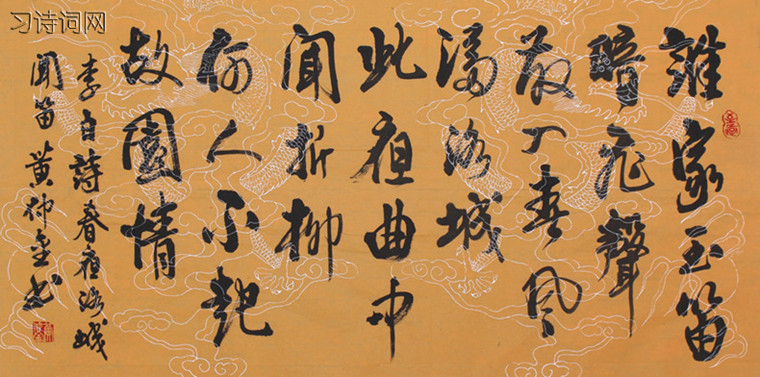 习诗词网
誰家玉笛
暗飛聲
散入春風
滿洛城
此夜曲中
聞折柳
何人不起
故園情
李白詩春夜洛城
聞笛 黄仲金书